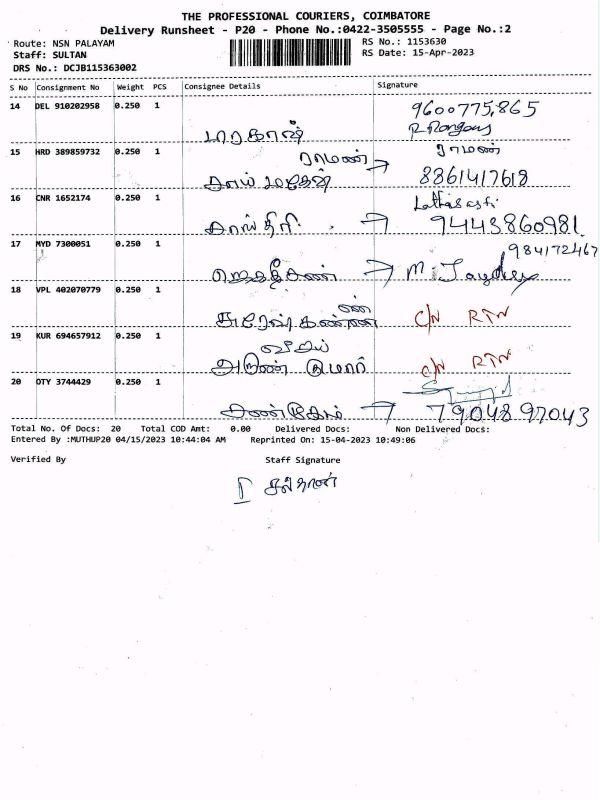 THE PROFESSIONAL COURIERS, COIMBATORE
Delivery Runsheet - P20 - Phone No.:0422-3505555 - Page No.:2
Route: NSN PALAYAM
RS No.: 1153630
Staff: SULTAN
RS Date: 15-Apr-2023
DRS No.: DCJB115363002
S No Consignment No Weight PCS Consignee Details Signature
14 DEL 910202958 0.250 1 9600775,865
15 HRD 389859732 0.250 1 ராமண் → ராமண்
8861417618
16 CNR 1652174 0.250 1
சாஸ்திரி → 9443860981.
17 MYD 7300051 0.250 1 984172467
ஜெகதீசண் →
18 VPL 402070779 0.250 1
சுரேஷ் கண்ணன் C/N RTN
19 KUR 694657912 0.250 1 விஜய்
அருண் குமார் C/N RTN
20 OTY 3744429 0.250 1
→ 7904897043
Total No. Of Docs: 20 Total COD Amt: 0.00 Delivered Docs: Non Delivered Docs:
Entered By :MUTHUP20 04/15/2023 10:44:04 AM Reprinted On: 15-04-2023 10:49:06
Verified By Staff Signature
சுல்தான்